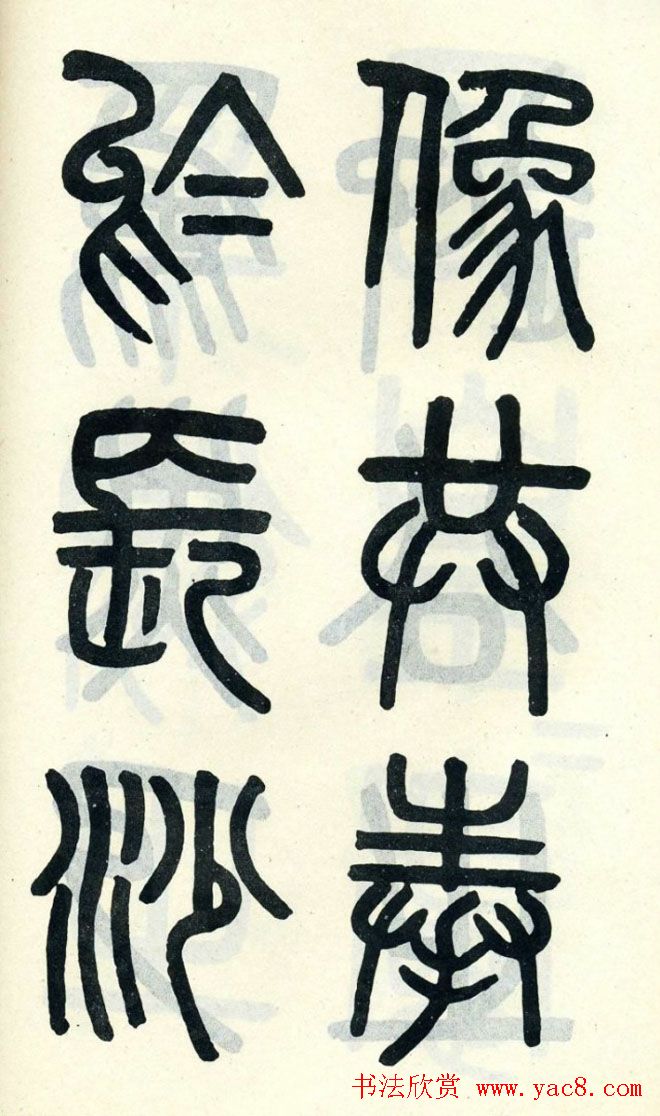 像共奉
於長沙
书法欣赏 www.yac8.com